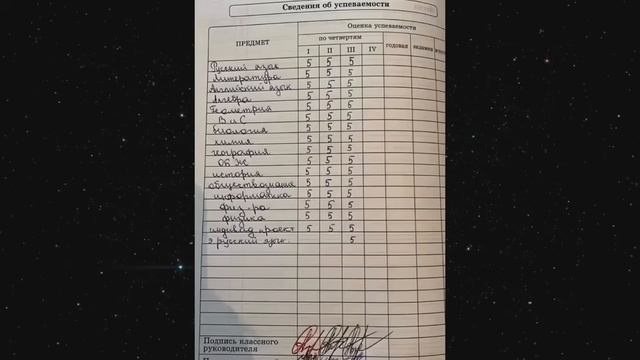 Сведения об успеваемости
ПРЕДМЕТ
Оценка успеваемости
по четвертям
I II III IV годовая экзамен
Русский язык 5 5 5
Литература 5 5 5
Английский язык 5 5 5
Алгебра 5 5 5
Геометрия 5 5 5
В и С 5 5 5
биология 5 5 5
химия 5 5 5
география 5 5 5
ОБЖ 5 5 5
история 5 5 5
обществознание 5 5 5
информатика 5 5 5
физ-ра 5 5 5
физика 5 5 5
индивид проект 5 5 5
русский язык. 5
Подпись классного
руководителя